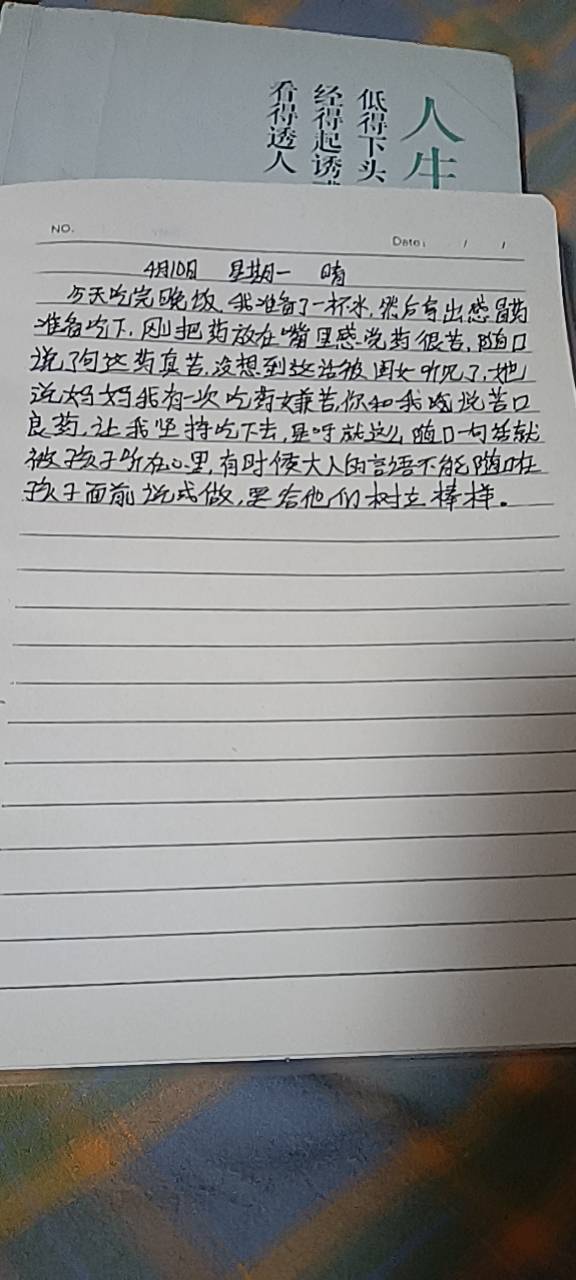 人生
低得下头
经得起诱
看得透人
NO.
Date: / /
4月10日 星期一 晴
今天吃完晚饭,我准备了一杯水,然后拿出感冒药
准备吃下,刚把药放在嘴里感觉药很苦,随口
说了句这药真苦,没想到这话被闺女听见了,她
说妈妈我有一次吃药嫌苦,你和我说苦口
良药,让我坚持吃下去,是呀就这么随口一句话就
被孩子听在心里,有时候大人的言语不能随口在
孩子面前说或做,要给他们树立榜样。